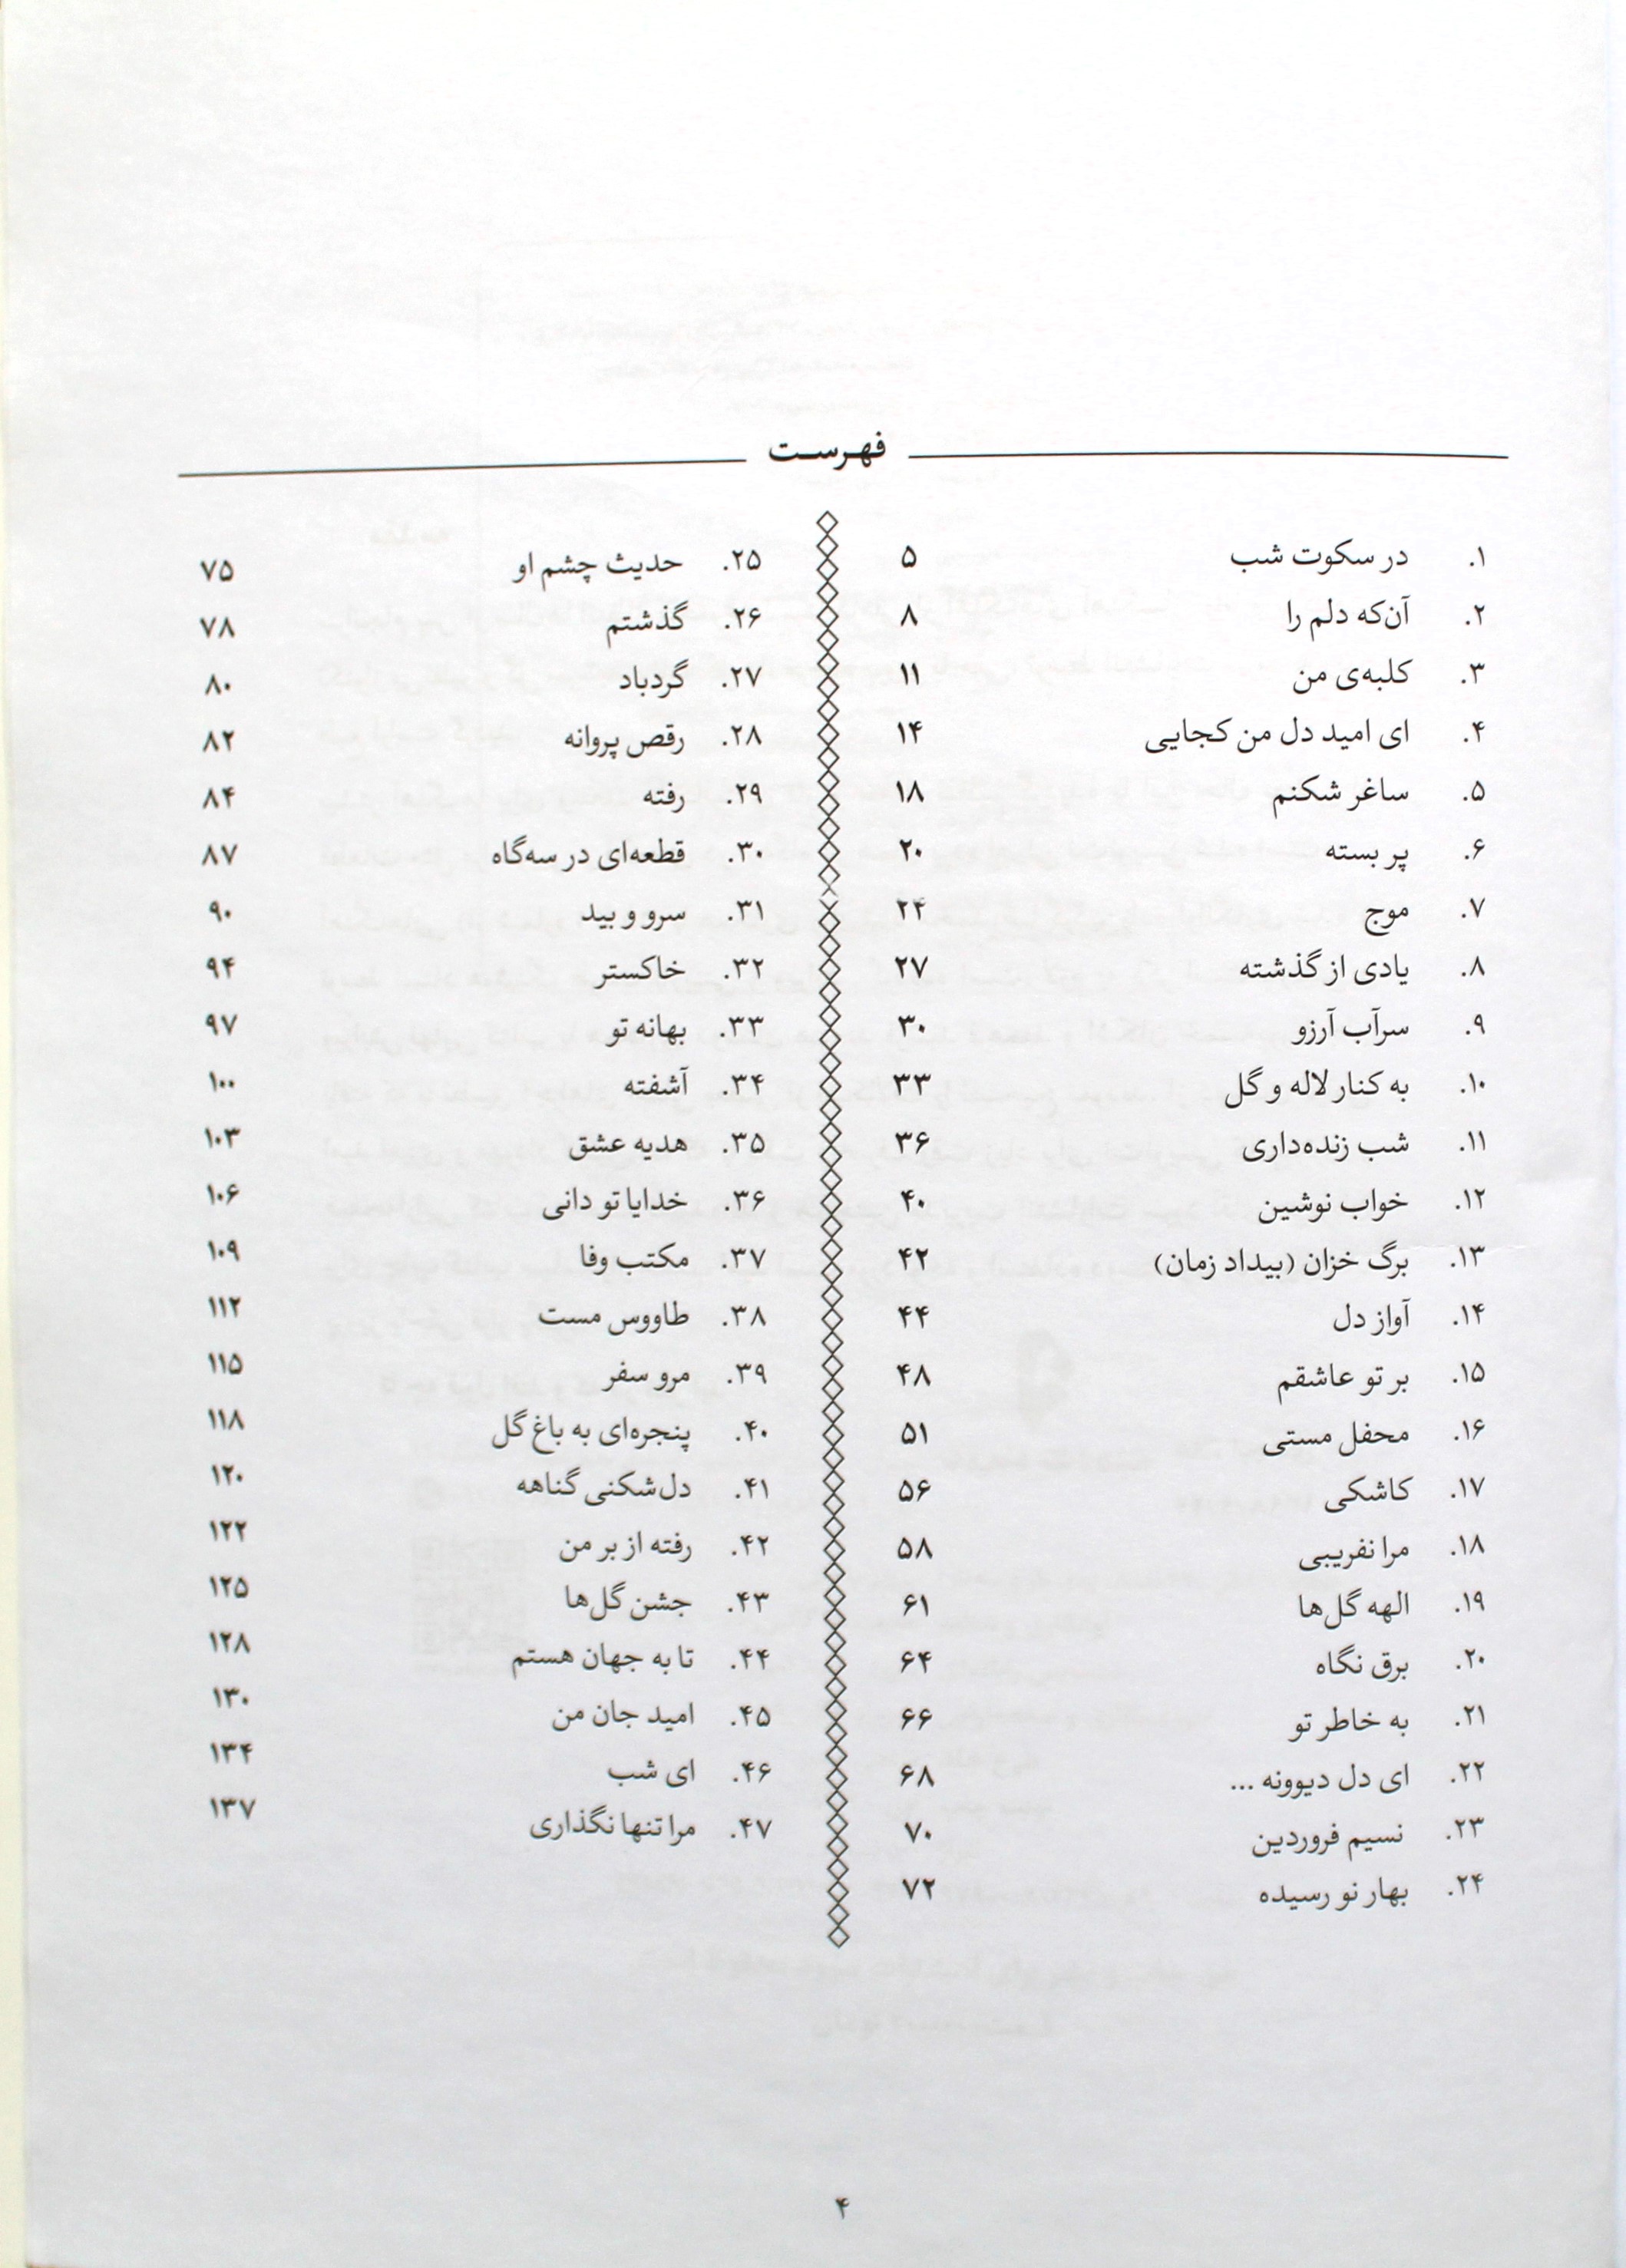 فهرست
۱. در سکوت شب ۵
۲. آن‌که دلم را ۸
۳. کلبه‌ی من ۱۱
۴. ای امید دل من کجایی ۱۴
۵. ساغر شکنم ۱۸
۶. پر بسته ۲۰
۷. موج ۲۴
۸. یادی از گذشته ۲۷
۹. سرآب آرزو ۳۰
۱۰. به کنار لاله و گل ۳۳
۱۱. شب زنده‌داری ۳۶
۱۲. خواب نوشین ۴۰
۱۳. برگ خزان (بیداد زمان) ۴۲
۱۴. آواز دل ۴۴
۱۵. بر تو عاشقم ۴۸
۱۶. محفل مستی ۵۱
۱۷. کاشکی ۵۶
۱۸. مرا نفریبی ۵۸
۱۹. الهه گل‌ها ۶۱
۲۰. برق نگاه ۶۴
۲۱. به خاطر تو ۶۶
۲۲. ای دل دیوونه ... ۶۸
۲۳. نسیم فروردین ۷۰
۲۴. بهار نو رسیده ۷۲
۲۵. حدیث چشم او ۷۵
۲۶. گذشتم ۷۸
۲۷. گردباد ۸۰
۲۸. رقص پروانه ۸۲
۲۹. رفته ۸۴
۳۰. قطعه‌ای در سه‌گاه ۸۷
۳۱. سرو و بید ۹۰
۳۲. خاکستر ۹۴
۳۳. بهانه تو ۹۷
۳۴. آشفته ۱۰۰
۳۵. هدیه عشق ۱۰۳
۳۶. خدایا تو دانی ۱۰۶
۳۷. مکتب وفا ۱۰۹
۳۸. طاووس مست ۱۱۲
۳۹. مرو سفر ۱۱۵
۴۰. پنجره‌ای به باغ گل ۱۱۸
۴۱. دل‌شکنی گناهه ۱۲۰
۴۲. رفته از بر من ۱۲۲
۴۳. جشن گل‌ها ۱۲۵
۴۴. تا به جهان هستم ۱۲۸
۴۵. امید جان من ۱۳۰
۴۶. ای شب ۱۳۴
۴۷. مرا تنها نگذاری ۱۳۷
۴